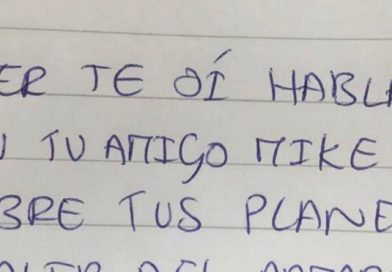 ER TE OÍ HABLA
U TU AMIGO MIKE
BRE TUS PLANE